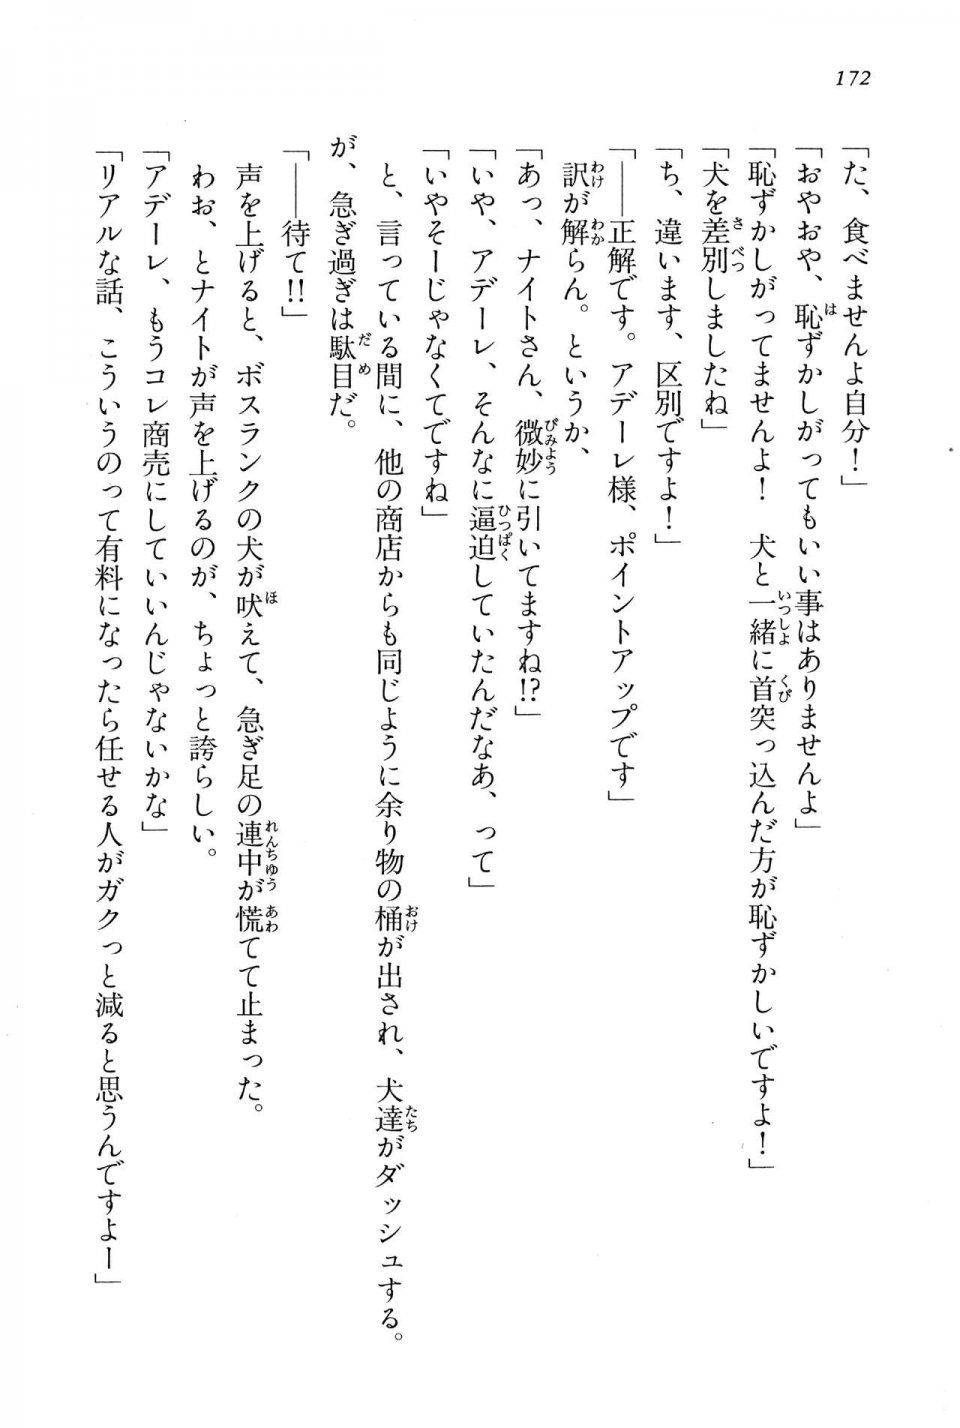 172
「た、食べませんよ自分！」
「おやおや、恥ずかしがってもいい事はありませんよ」
「恥ずかしがってませんよ！　犬と一緒に首突っ込んだ方が恥ずかしいですよ！」
「犬を差別しましたね」
「ち、違います、区別ですよ！」
「――正解です。アデーレ様、ポイントアップです」
訳が解らん。というか、
「あっ、ナイトさん、微妙に引いてますね!?」
「いや、アデーレ、そんなに逼迫していたんだなあ、って」
「いやそーじゃなくてですね」
と、言っている間に、他の商店からも同じように余り物の桶が出され、犬達がダッシュする。
が、急ぎ過ぎは駄目だ。
「――待て!!」
声を上げると、ボスランクの犬が吠えて、急ぎ足の連中が慌てて止まった。
わお、とナイトが声を上げるのが、ちょっと誇らしい。
「アデーレ、もうコレ商売にしていいんじゃないかな」
「リアルな話、こういうのって有料になったら任せる人がガクっと減ると思うんですよー」